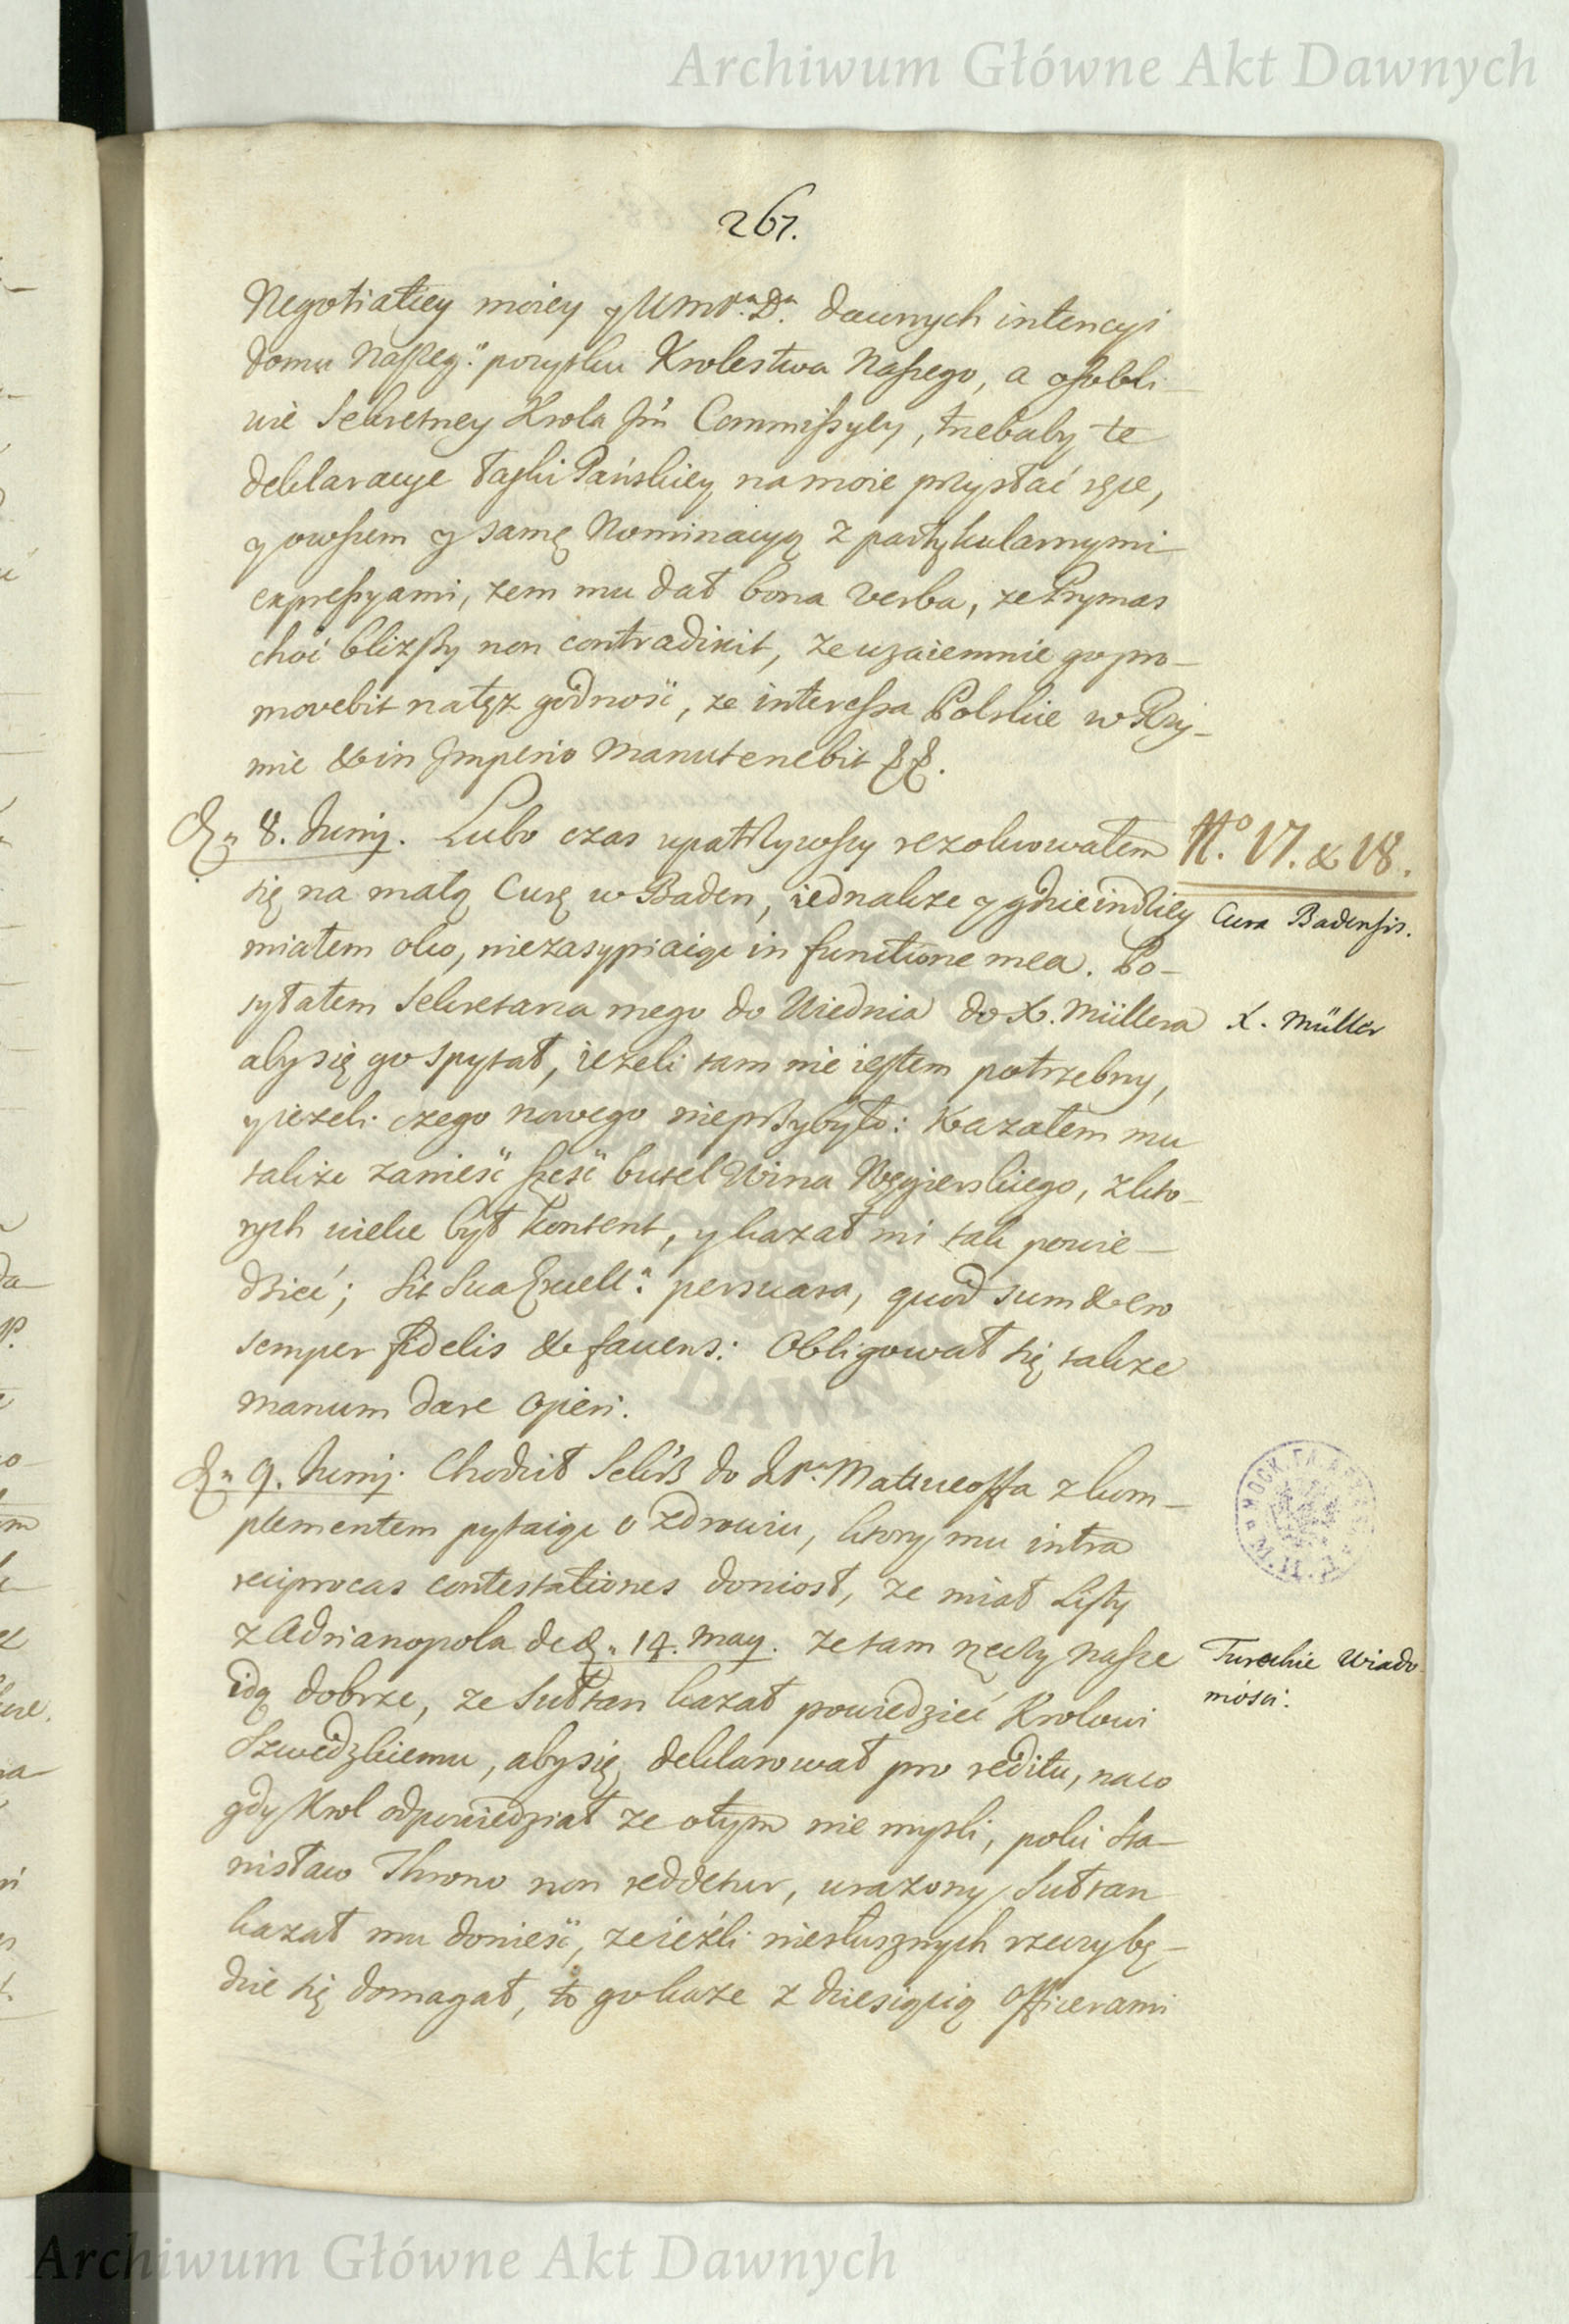 Archiwum Główne Akt Dawnych
267.
Negotiatiey moiey y dawnych intencyi
domu Naszeg.° pozysku Krolestwa Naszego, a osobli-
wie Sekretney Krola Jm Commissyey, trzebaby te
deklaracye łaski Pańskiey na moie przysłać ręce,
y owszem y samę Nominacyą z partykularnymi
expressyami, zem mu dał bona verba, ze Prymas
choć bliższy non contradixit, ze uzaiemnie go pro-
movebit natęż godność, ze interessa Polskie w Rzy-
mie & in Imperio manutenebit
8. Junij. Lubo czas upatrzywszy rezolwowałem
N.° 17. & 18.
się na małą Curę w Baden, iednakże y gdzieindziey
Cura Badensis.
miałem oko, niezasypiaiąc in functione mea. Po-
syłałem Sekretarza mego do Wiednia do X. Müllera
X. Müller
aby się go spytał, ieżeli tam nie iestem potrzebny,
y ieżeli czego nowego nieprzybyło: Kazałem mu
także zanieść sześć butel Wina Węgierskiego, z kto-
rych wielce był kontent, y kazał mi tak powie-
dzieć; sit Sua Excell.ª persuasa, quod sum & ero
semper fidelis & favens: Obligował się także
manum dare operi.
9. Junij. Chodził Sekrz do Matueoffa z kom-
plementem pytaiąc o zdrowiu, ktory mu intra
reciprocas contestationes doniosł, ze miał Listy
z Adrianopola de 14. May. ze tam rzeczy nasze
Tureckie Wiado-
mości.
idą dobrze, ze Sułtan kazał powiedzieć Krolowi
Szwedzkiemu, aby się deklarował pro reditu, na co
gdy Krol odpowiedział ze o tym nie mysli, poki Sta-
nisław Throno non reddetur, urażony Sułtan
kazał mu donieść, ze ieżli niesłusznych rzeczy bę-
dzie się domagał, to go każe z dziesiącią Officerami
Archiwum Główne Akt Dawnych